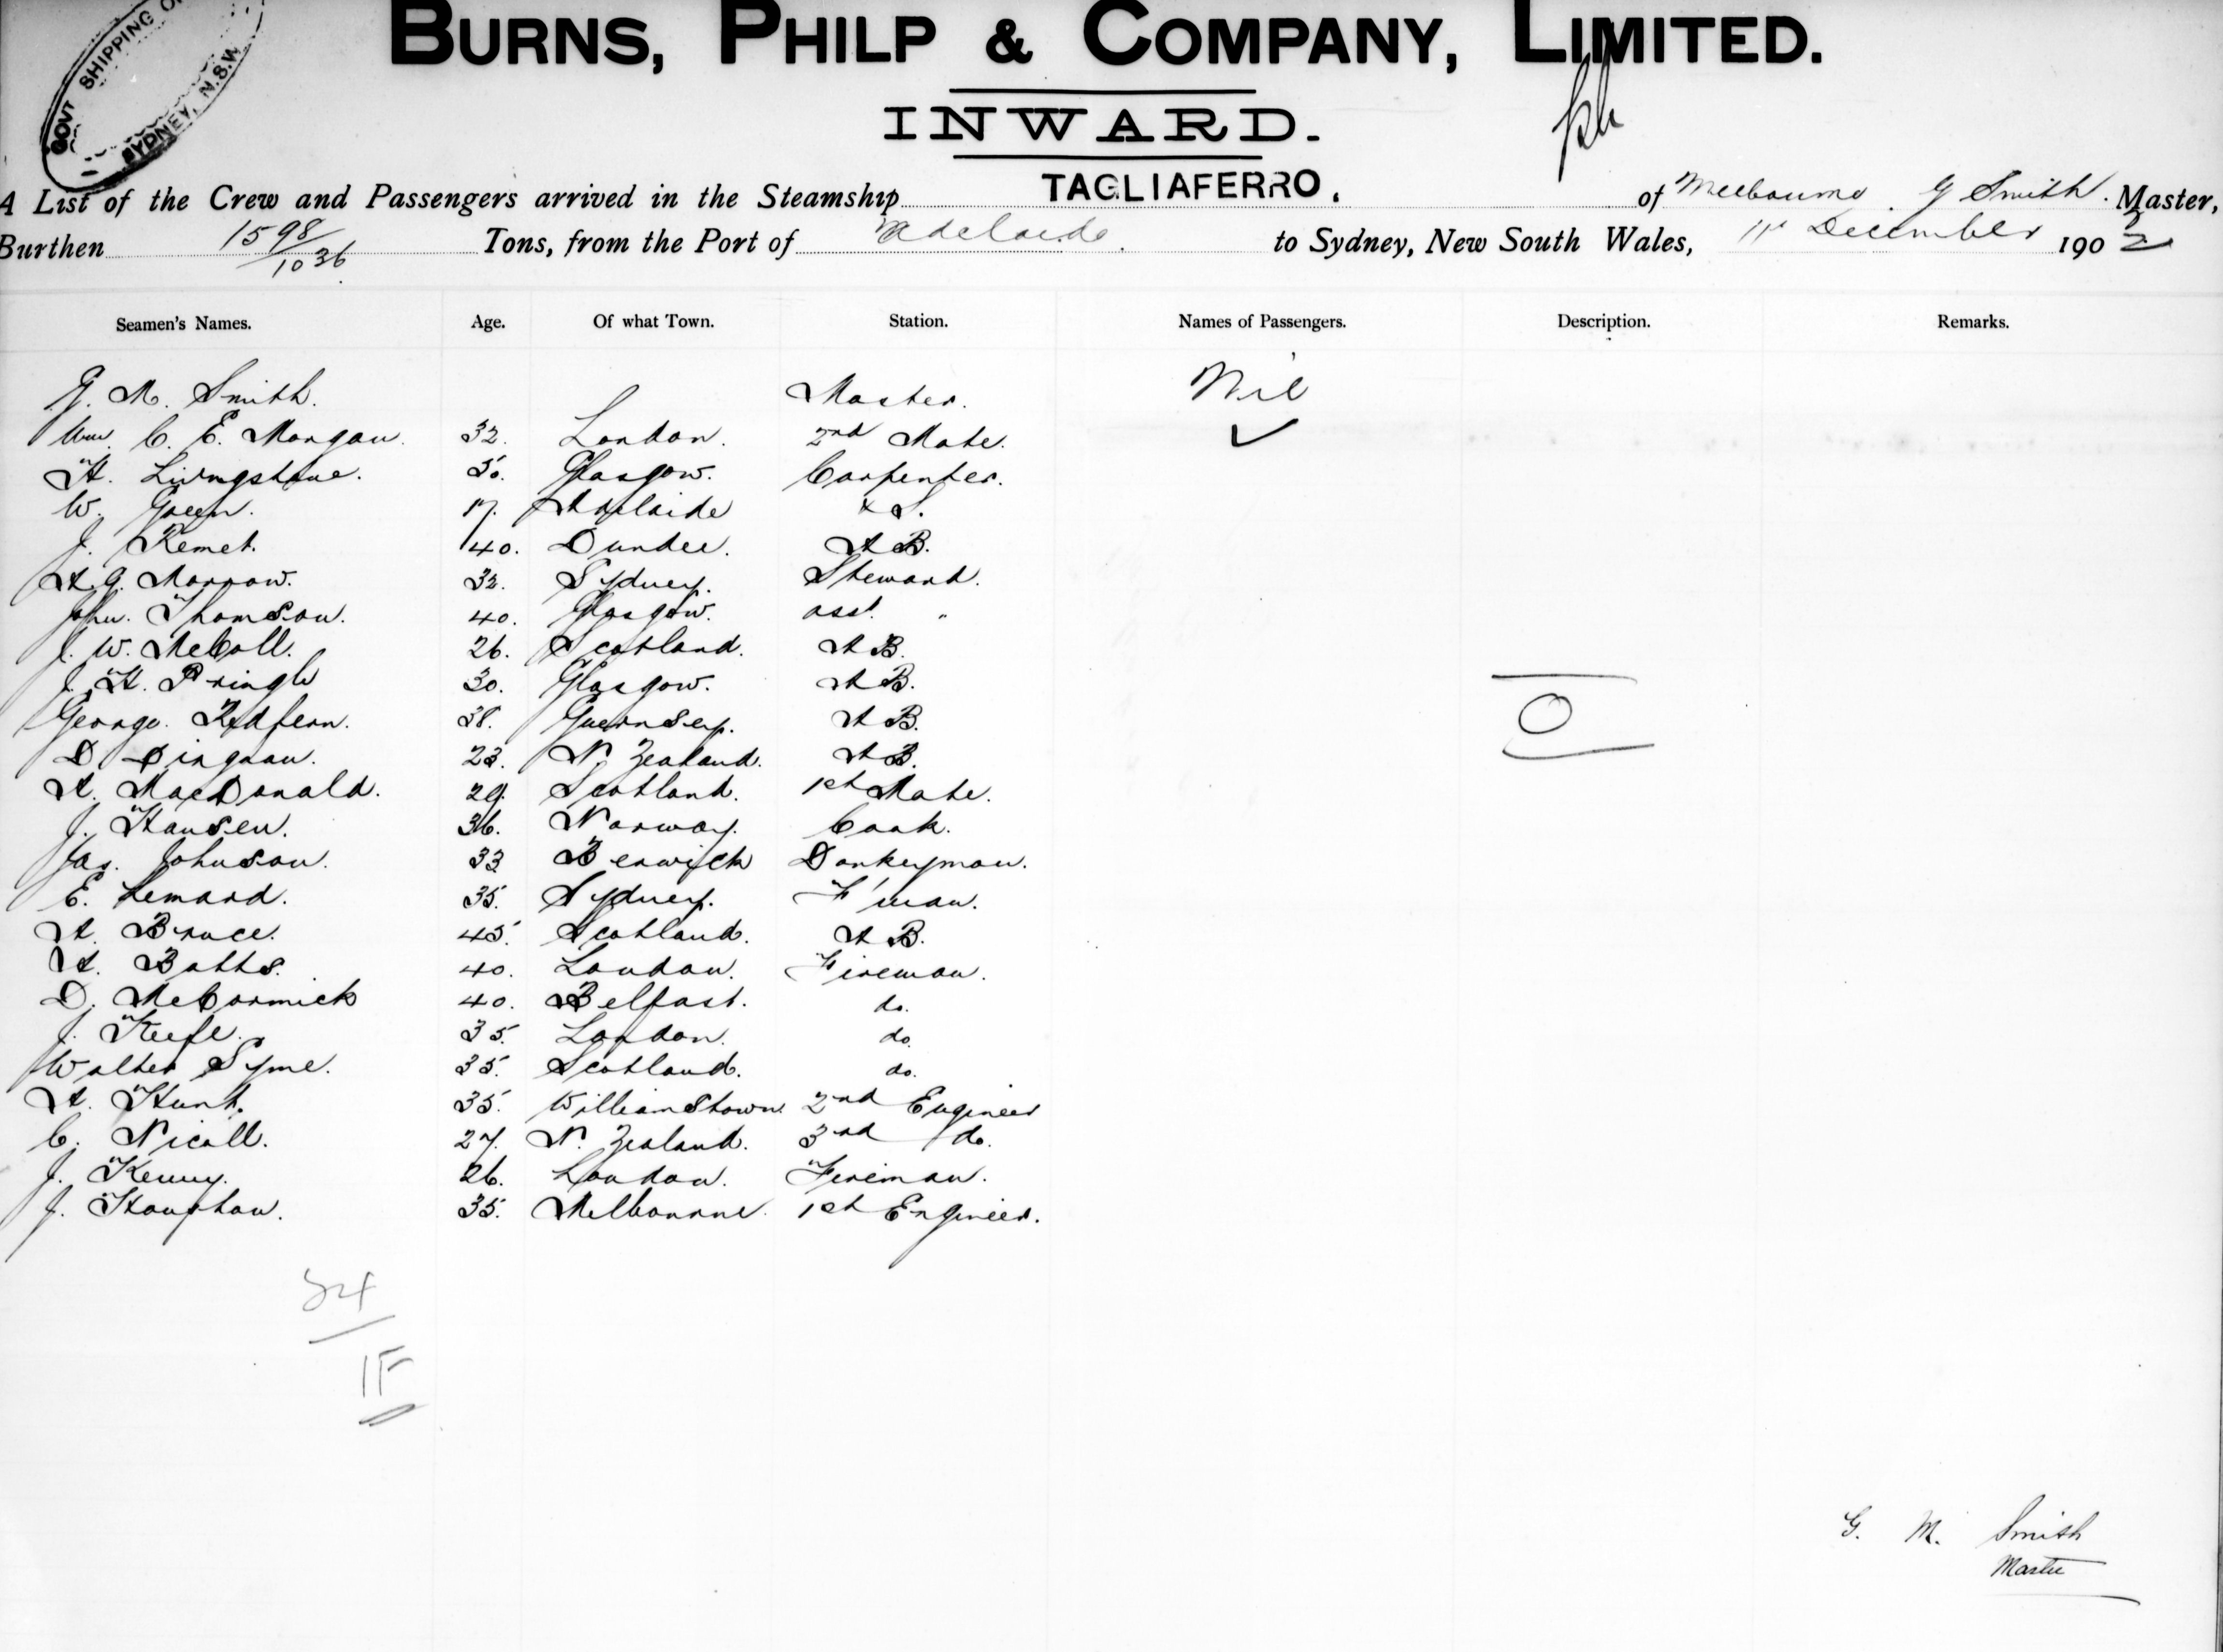 GOVT SHIPPING O
SYDNEY, N.S.W.
BURNS, PHILP & COMPANY, LIMITED.
INWARD.
A List of the Crew and Passengers arrived in the Steamship TAGLIAFERRO, of Melbourne. G Smith. Master,
Burthen 1598/1036 Tons, from the Port of Adelaide. to Sydney, New South Wales, 11th December 1902
Seamen's Names. Age. Of what Town. Station. Names of Passengers. Description. Remarks.
G. M. Smith. Master. Nil
Wm. C. E. Morgan. 32. London. 2nd Mate.
A. Livingstone. 50. Glasgow. Carpenter.
W. Green. 17. Adelaide S.
J. Kemet. 40. Dundee. A B.
A. G. Morrow. 32. Sydney. Steward.
John. Thomson. 40. Glasgow. asst. "
J. W. McColl. 26. Scotland. A B.
J. H. Pringle 30. Glasgow. A B.
George. Redfern. 38. Guernsey. A B.
D 23. N. Zealand. A B.
A. MacDonald. 29. Scotland. 1st Mate.
J. Hansen. 36. Norway. Cook.
Jas. Johnson. 33 Berwick Donkeyman.
E. Lemard. 35. Sydney. F'man.
A. Bruce. 45. Scotland. A B.
A. Batts. 40. London. Fireman.
D. McCormick 40. Belfast. do.
J. Keefe. 35. London. do.
Walter Syme. 35. Scotland. do.
A. Hunt. 35. Williamstown. 2nd Engineer
C. Nicoll. 27. N. Zealand. 3rd do.
J. Kenny. 26. London. Fireman.
J. 35. Melbourne. 1st Engineer.
24
1F
G. M. Smith
Master